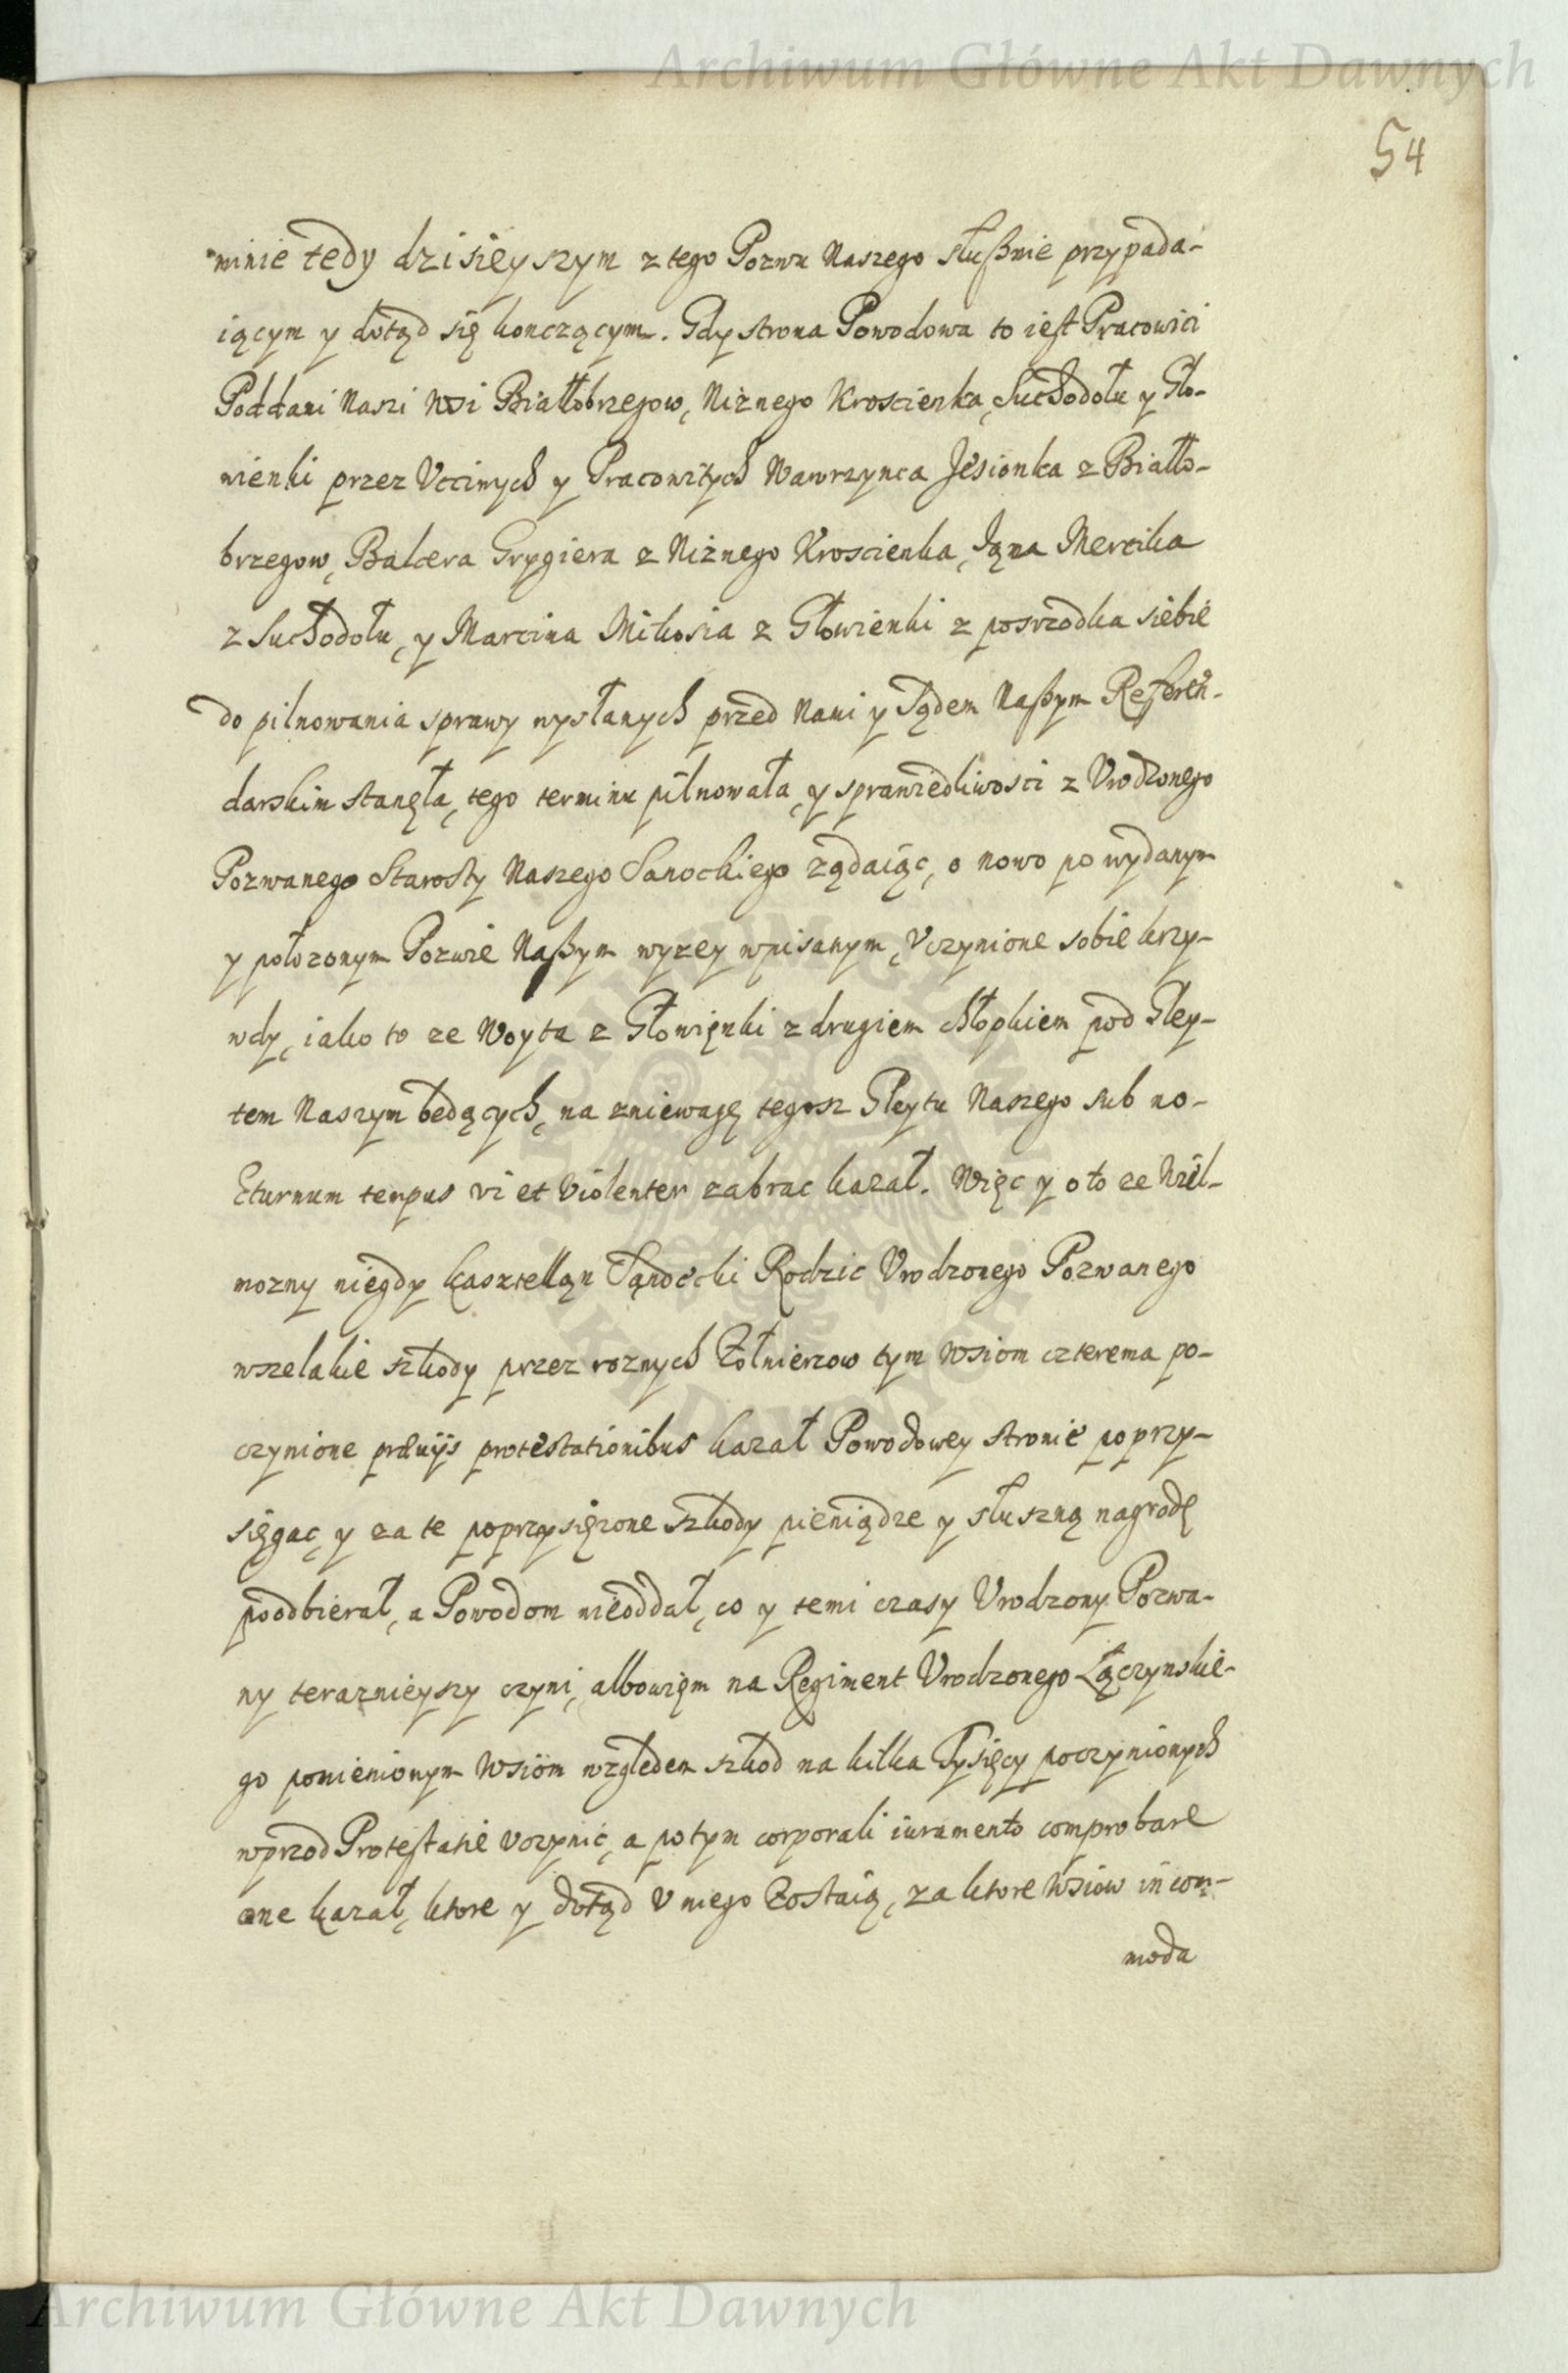 Archiwum Główne Akt Dawnych
54
minie tedy dzisieyszym z tego Pozwu Naszego słußnie przypada-
iącym y dotąd się konczącym. Gdy strona Powodowa to iest Pracowici
Poddani Nasi Wsi Białłobrzegow, Niżnego Kroscienka, Suchodołu y Gło-
wienki przez Vcciwych y Pracowitych Wawrzynca Jesionka z Białło-
brzegow, Balcera Grygiera z Niżnego Kroscienka, Iąna Mercika
z Suchodołu, y Marcina Mikosia z Głowienki z posrzodka siebie
do pilnowania sprawy wysłanych przed Nami y Sądem Naßym Referen-
darskim stanęła, tego terminu pilnowała, y sprawiedliwosci z Vrodzonego
Pozwanego Starosty Naszego Sanockiego żądaiąc, o nowo po wydanym
y położonym Pozwie Naßym wyzey wpisanym, Vczynione sobie krzy-
wdy, iako to ze Woyta z Głowięnki z drugiem chłopkiem pod Gley-
tem Naszym będących, na zniewagę tegosz Gleytu Naszego sub no-
cturnum tempus vi et violenter zabrac kazał. Więc y oto ze Wiel-
mozny niegdy kasztelląn Sąnocki Rodzic Vrodzonego Pozwanego
wszelakie szkody przez roznych Żołnierzow tym Wsiom czterema po-
czynione præuijs protestationibus kazał Powodowey stronie poprzy-
sięgac, y za te poprzysięzone szkody pieniądze y słuszną nagrodę
poodbierał, a Powodom nieoddał, co y temi czasy Vrodzony Pozwa-
ny teraznieyszy czyni, albowięm na Regiment Vrodzonego Łączynskie-
go pomienionym Wsiom względem szkod na kilka Tysięcy poczynionych
wprzod Protestatie vczynic, a potym corporali iuramento comprobare
one kazał, ktore y dotąd V niego Zostaią, za ktore Wsiow incom-
moda
Archiwum Główne Akt Dawnych